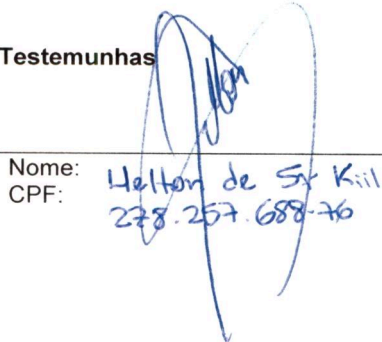 Testemunhas
Nome: Helton de Kiil
CPF: 278.257.688-76